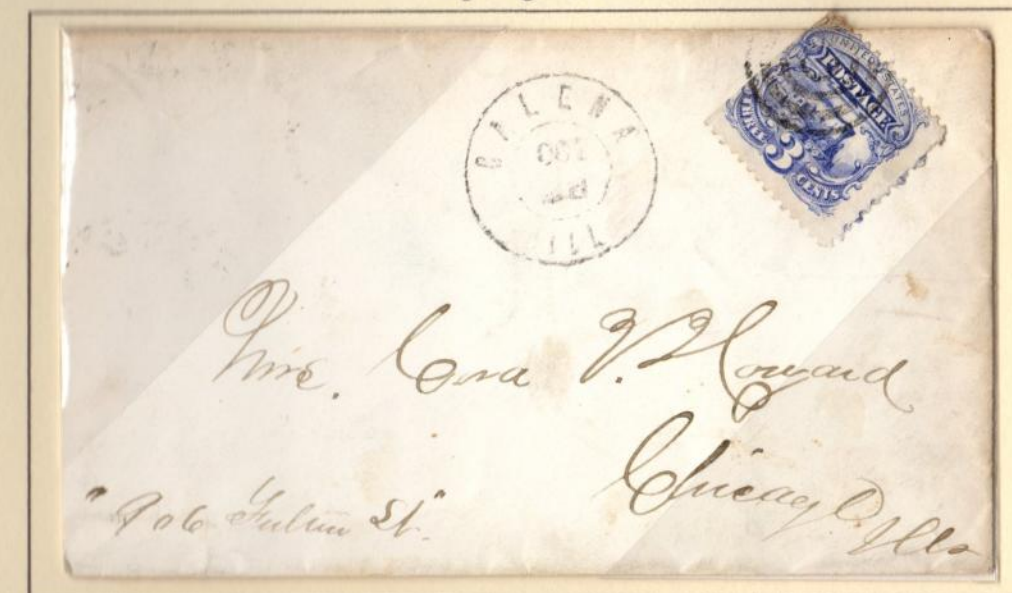 GALENA
OCT
ILL
UNITED STATES
POSTAGE
THREE 3 CENTS
Mrs. Cora V. Howard
Chicago
Ills
"906 Fulton St."